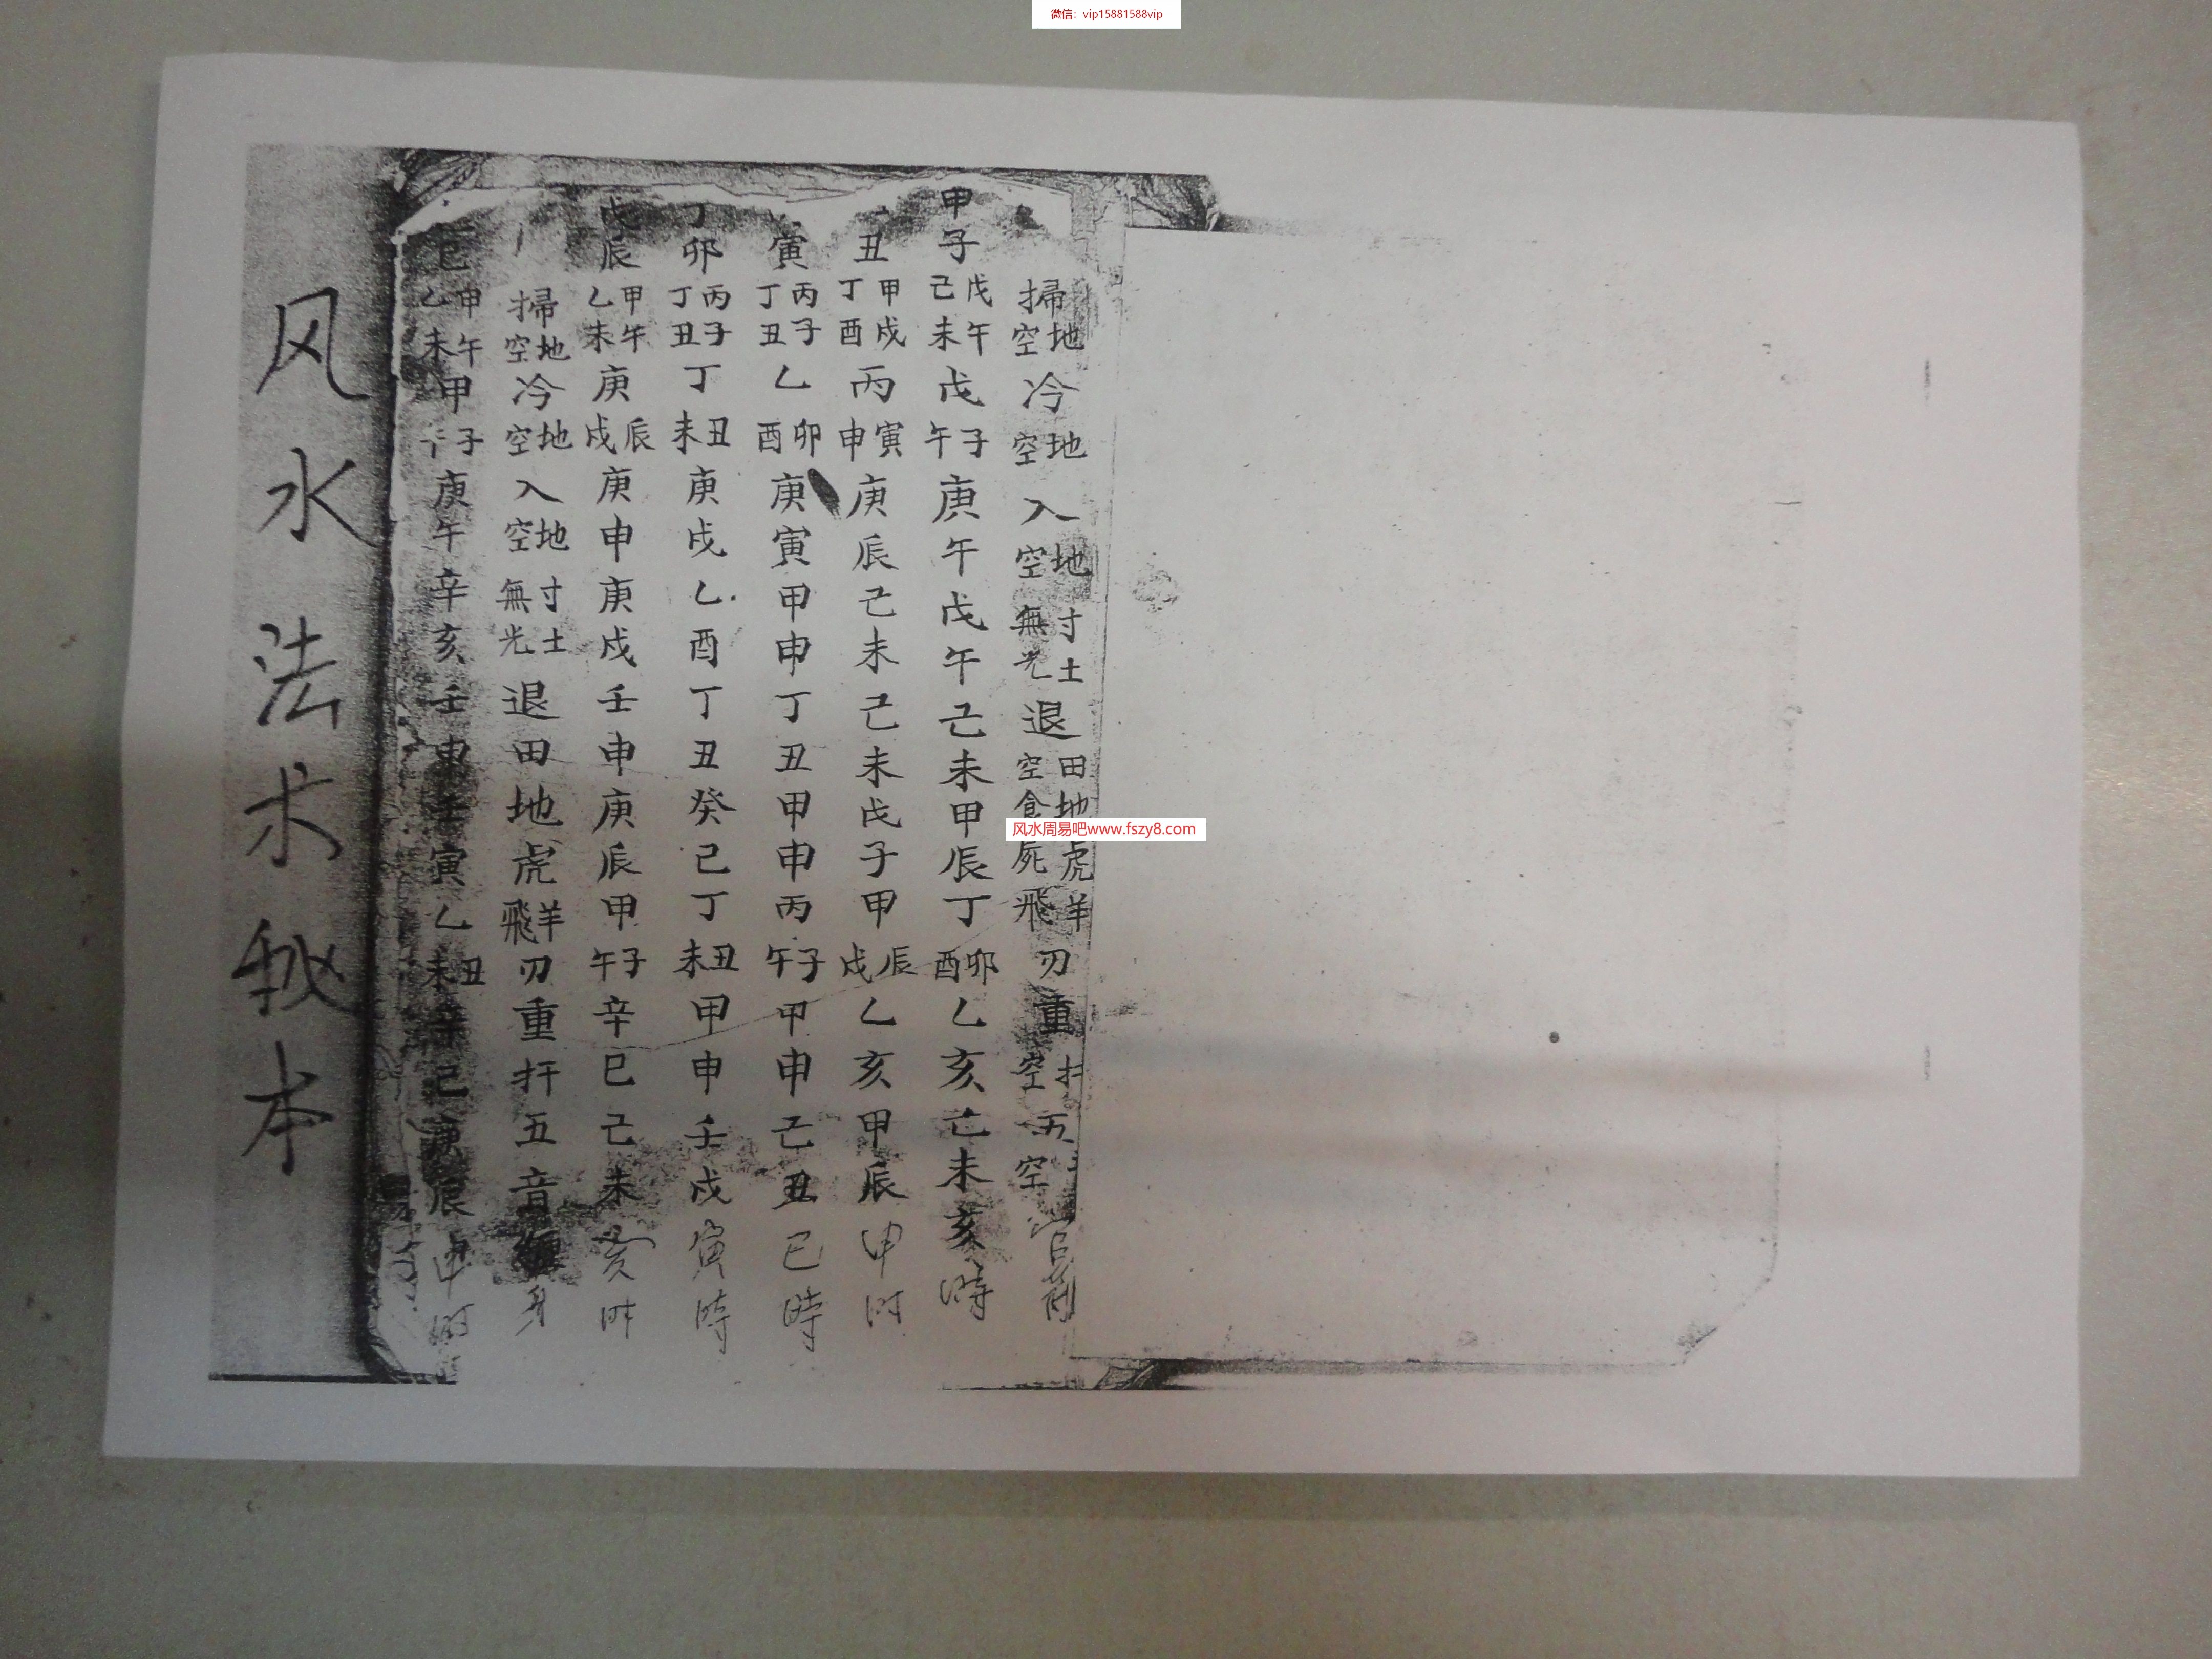 微信：vip15881588vip
掃地空冷地空入地空寸土無光退田地空食虎屍羊飛刃重空五空
甲子戊午己未戊子午庚午戊午己未甲辰丁卯酉乙亥己未亥時
丑甲戌丁酉丙寅申庚辰己未己未戊子甲辰戌乙亥甲辰甲时
寅丙子丁丑乙卯酉庚寅甲申丁丑甲申丙子午甲申己丑巳時
丁卯丙子丁丑丁丑未庚戌乙酉丁丑癸巳丁丑未甲申壬戌寅時
戊辰甲午乙未庚辰戌庚申庚戌壬申庚辰甲子午辛巳己未亥时
掃地空冷地空入地空寸土無光退田地虎羊飛刃重扦五音身
巳甲午乙未甲子午庚午辛亥壬申壬寅乙丑未辛巳庚辰申时
风水法术秘本
风水周易吧www.fszy8.com